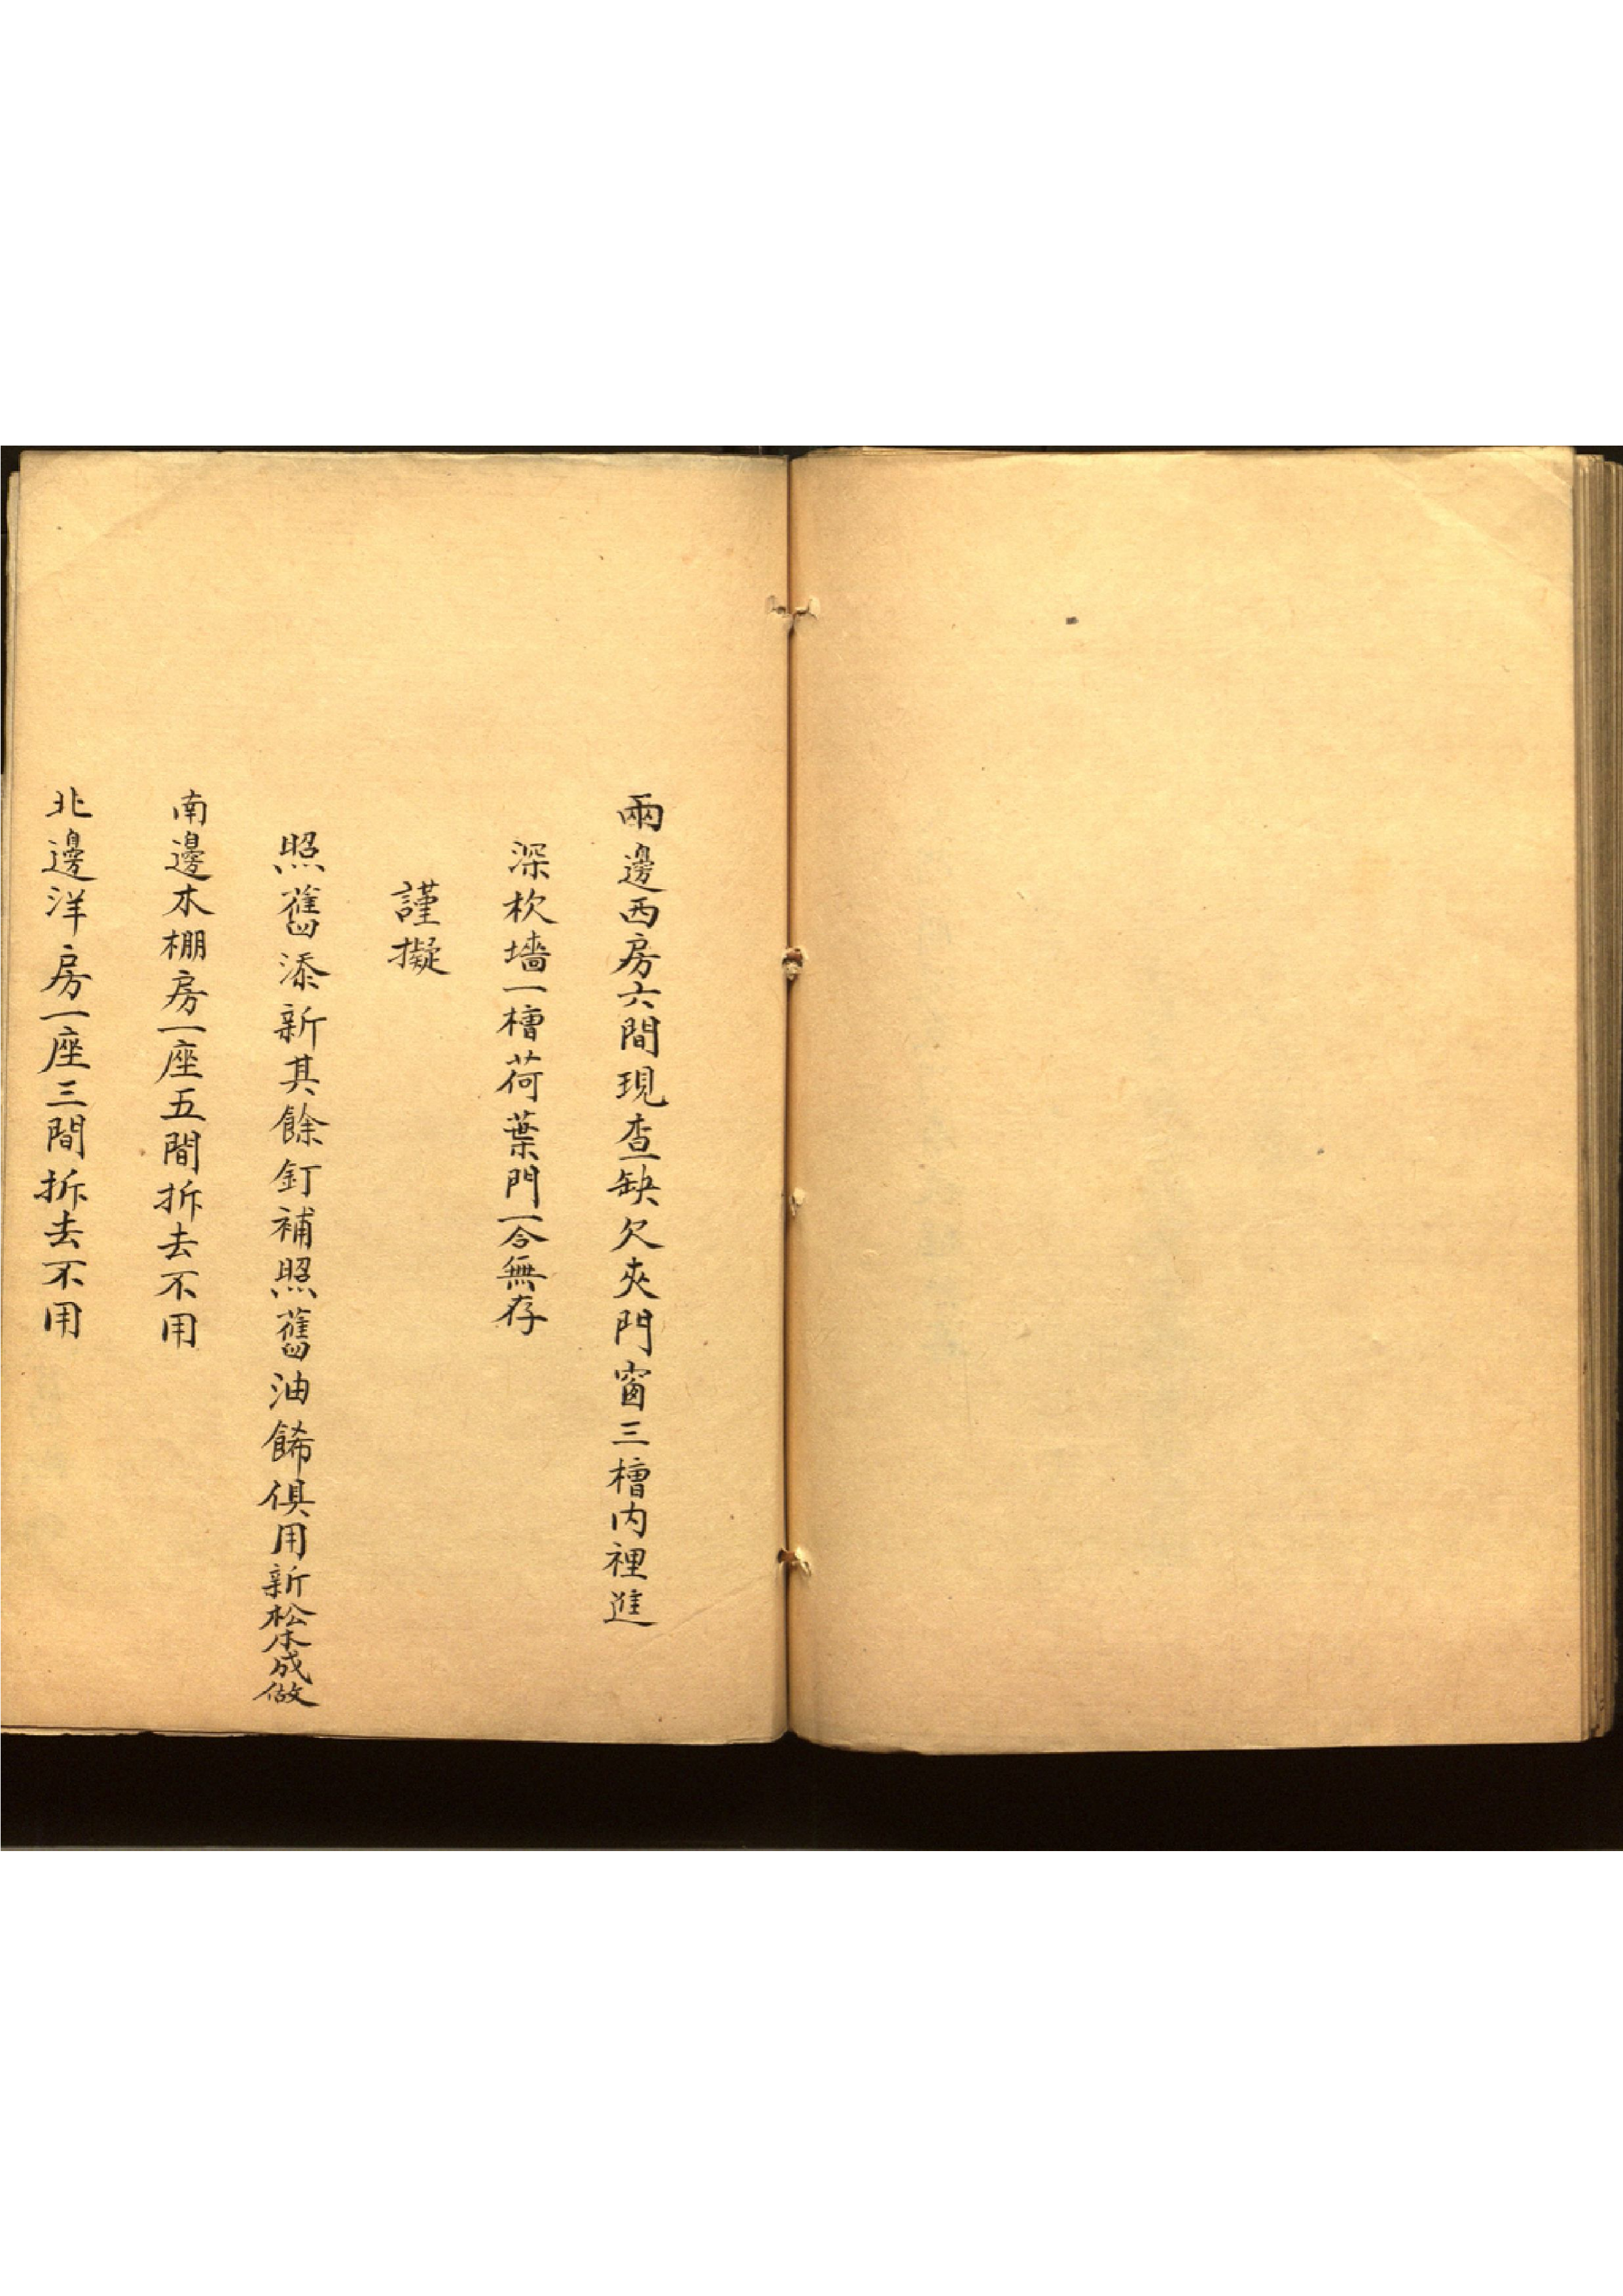 兩邊西房六間現查缺欠夾門窗三槽内裡進
深杴墻一槽荷葉門一合無存
謹擬
照舊添新其餘釘補照舊油餙俱用新松木成做
南邊木棚房一座五間拆去不用
北邊洋房一座三間拆去不用